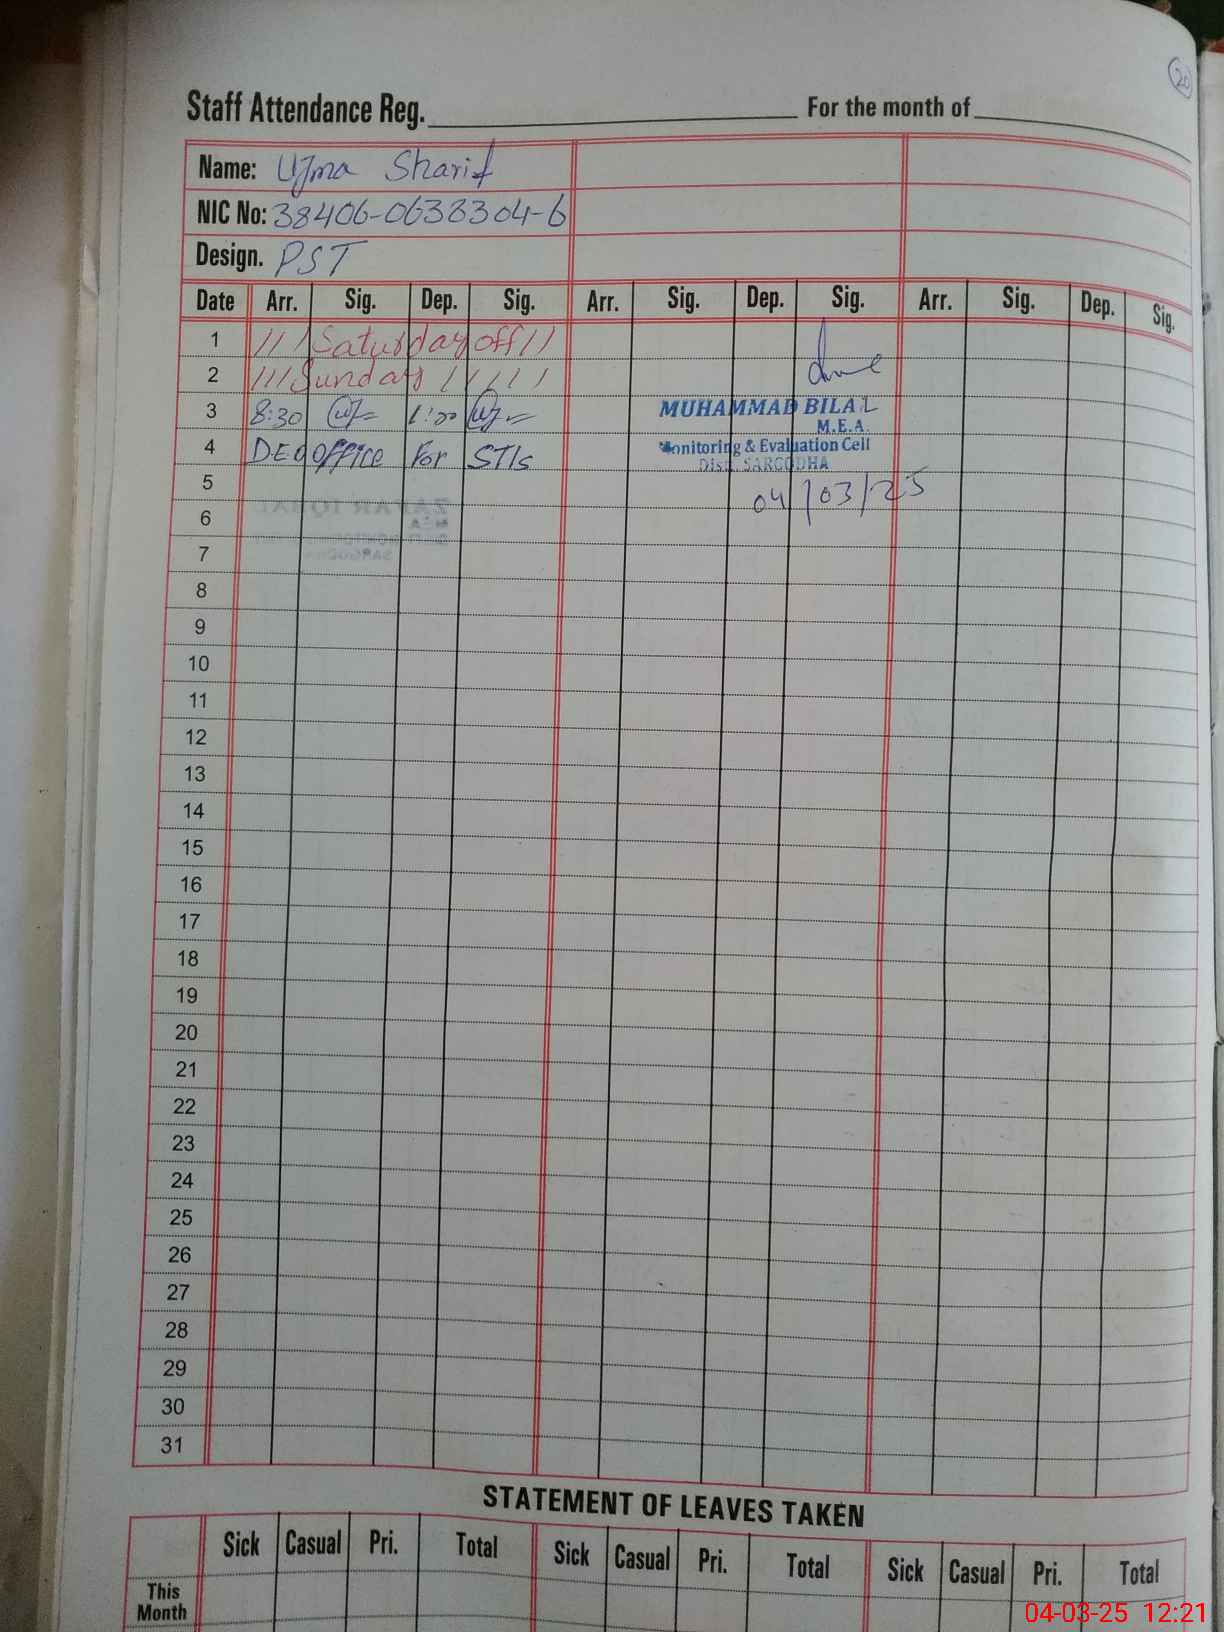 20
Staff Attendance Reg. For the month of
Name: Uzma Sharif
NIC No: 38406-0638304-6
Design. PST
Date Arr. Sig. Dep. Sig. Arr. Sig. Dep. Sig. Arr. Sig. Dep. Sig.
1 / / / Saturday off / /
2 / / / Sunday / / / / /
3 8:30 1:00
MUHAMMAD BILAL
M.E.A.
4 DEO office For STIs
Monitoring & Evaluation Cell
Dist. SARGODHA
5
04/03/25
6
ZAFAR IQBAL
M.E.A.
7
SARGODHA
8
9
10
11
12
13
14
15
16
17
18
19
20
21
22
23
24
25
26
27
28
29
30
31
STATEMENT OF LEAVES TAKEN
Sick Casual Pri. Total Sick Casual Pri. Total Sick Casual Pri. Total
This
Month
04-03-25 12:21